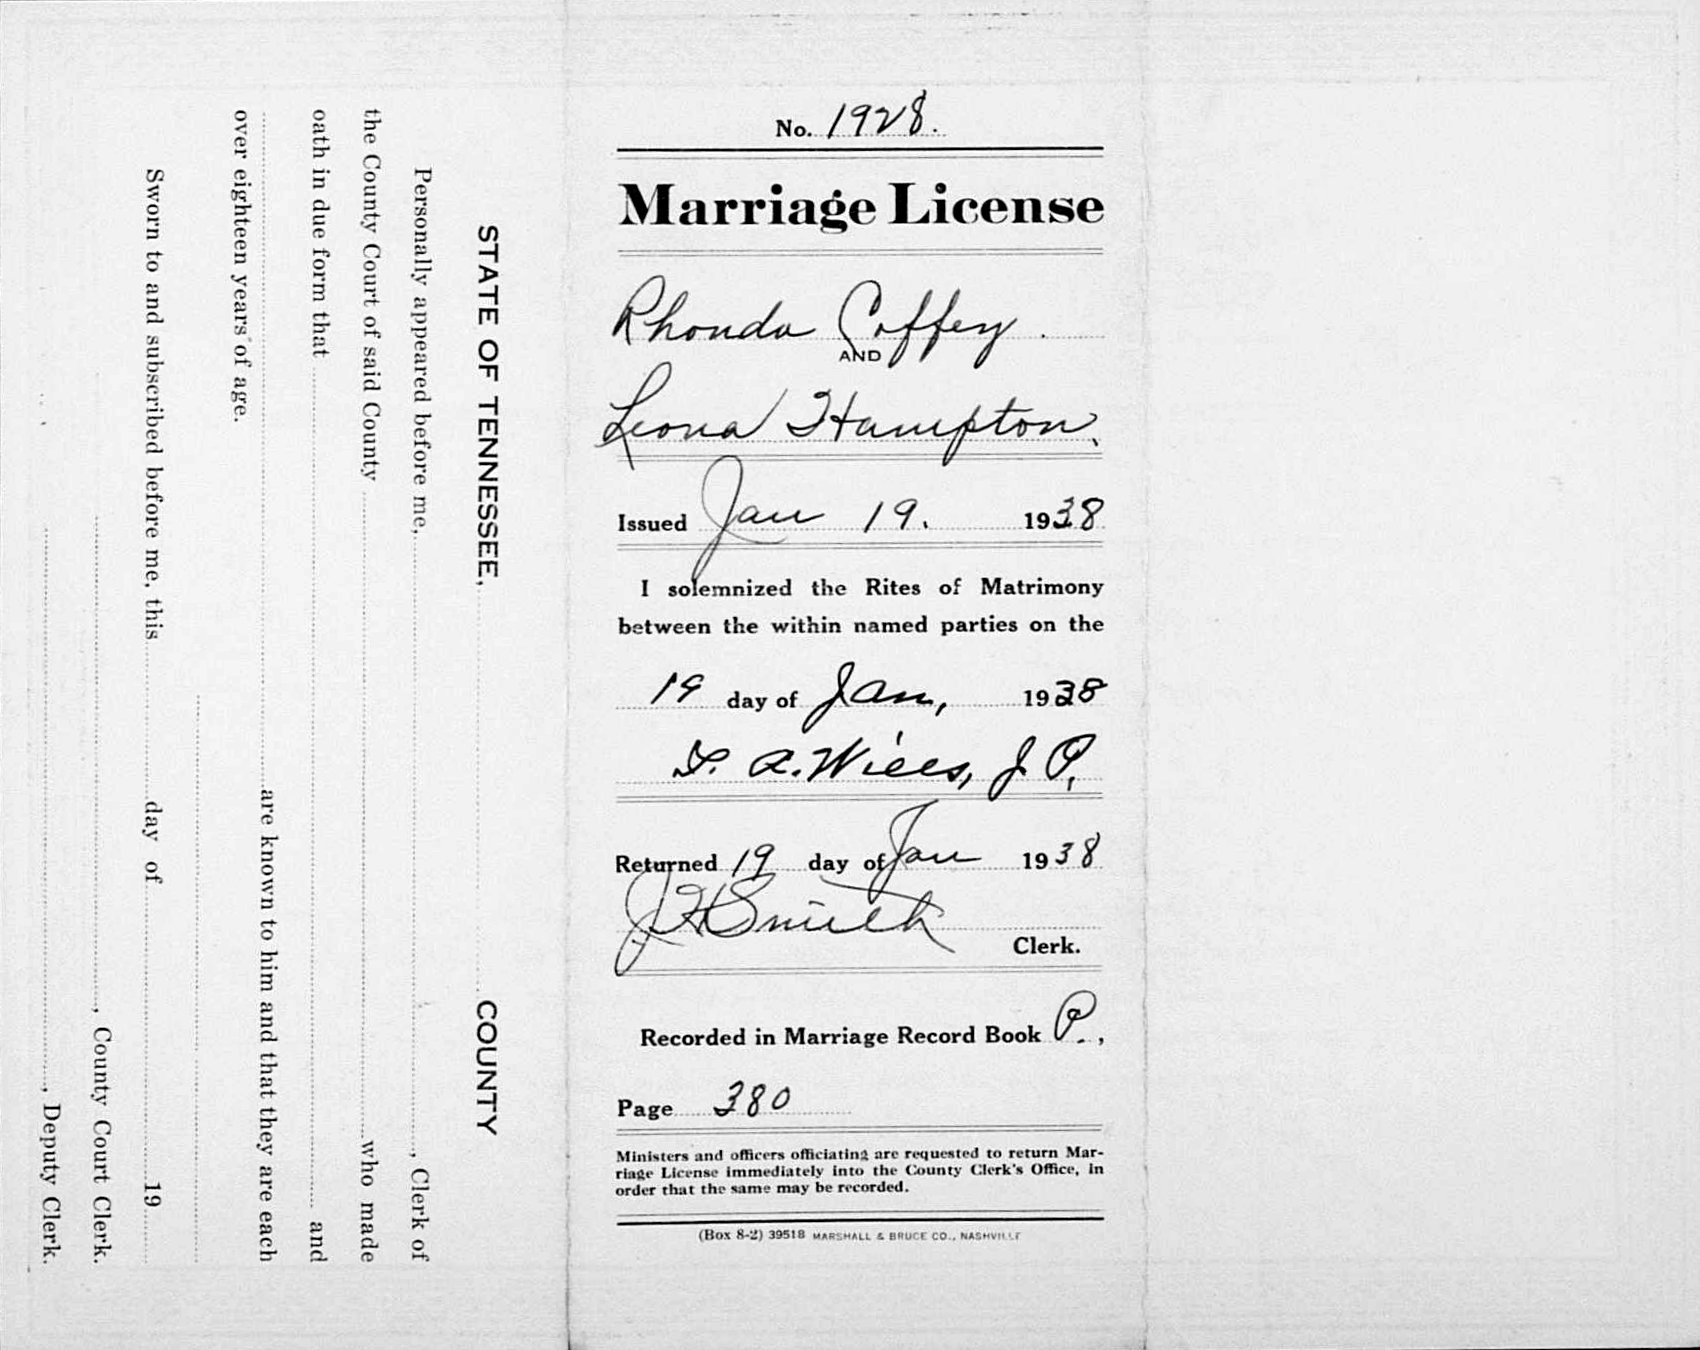 No. 1928.
Marriage License
Rhonda Coffey.
AND
Leona Hampton.
Issued Jan 19. 1938
I solemnized the Rites of Matrimony
between the within named parties on the
19 day of Jan, 1938
A. Wiles, J. P.
Returned 19 day of Jan 1938
J H Smith
Clerk.
Recorded in Marriage Record Book P.,
Page 380
Ministers and officers officiating are requested to return Mar-
riage License immediately into the County Clerk's Office, in
order that the same may be recorded.
(Box 8-2) 39518 MARSHALL & BRUCE CO., NASHVILLE
STATE OF TENNESSEE, COUNTY
Personally appeared before me, , Clerk of
the County Court of said County who made
oath in due form that and
are known to him and that they are each
over eighteen years of age.
Sworn to and subscribed before me, this day of 19
, County Court Clerk.
, Deputy Clerk.